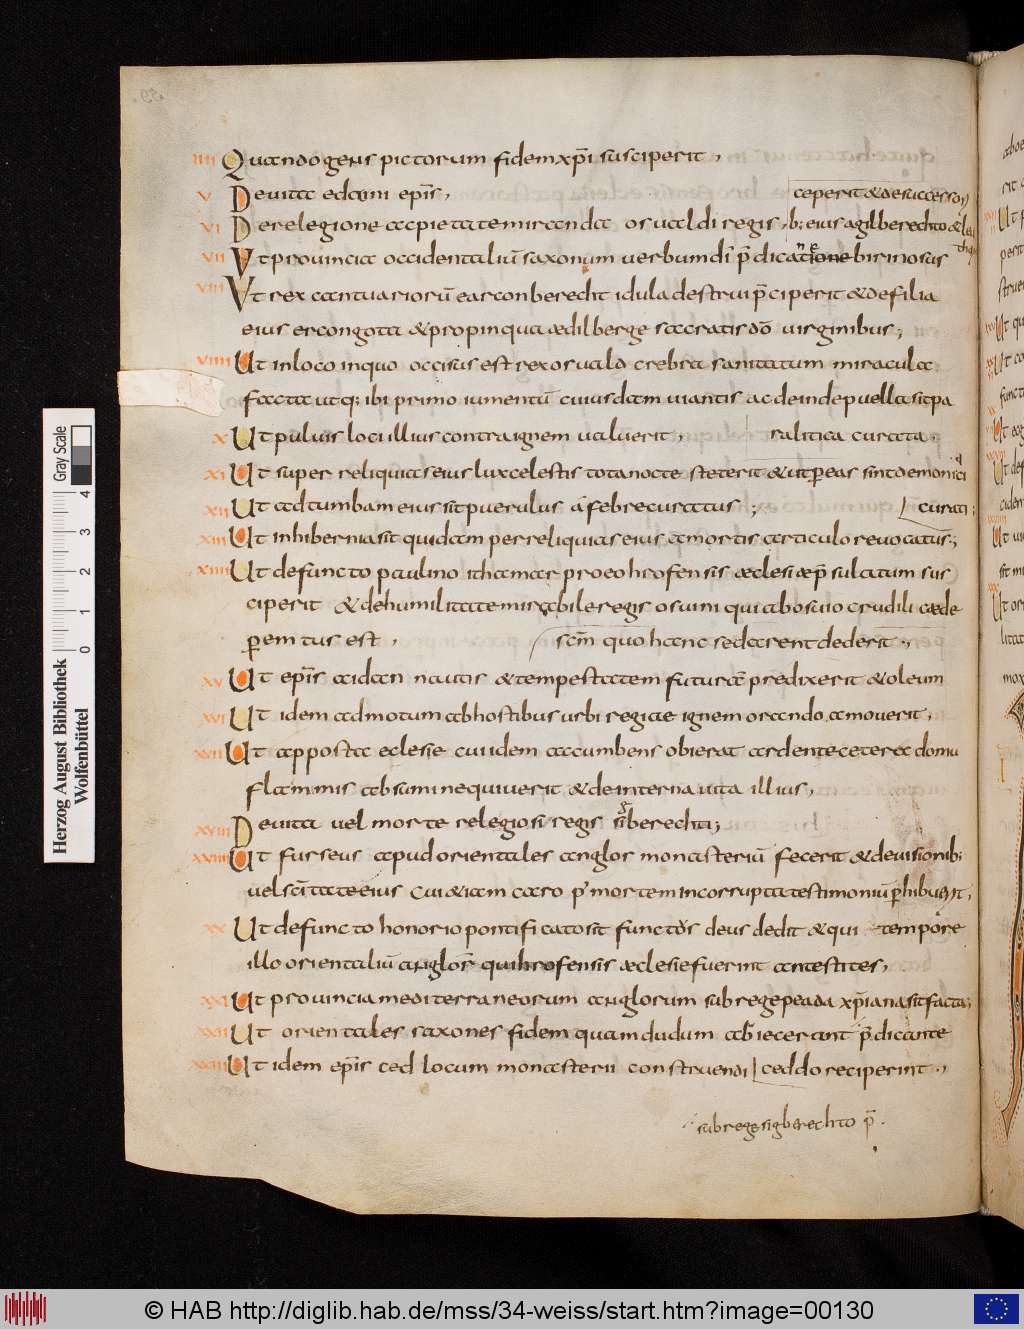 IIII Quando gens pictorum fidem xp̄i susciperit,
V De uita edani ep̄is,
ceperit & de successori
VI De relegione ac pietate miranda osualdi regis, b; eius agilberechto & leu
theri
VII Ut prouincia occidentaliū saxonum uerbum dī p̄dicante birinosus
VIII Ut rex cantuariorū earconberecht idula destrui p̄ciperit & de filia
eius ercongota & propinqua ædilberge sacratis dō uirginibus;
VIIII Ut in loco in quo occisus est rex osuald crebra sanitatum miracula
facta utq; ibi primo iumentū cuiusdam uiantis ac deinde puella sit pa
X Ut puluis loci illius contra ignem ualuerit, ralitica curata.
XI Ut super reliquias eius lux celestis tota nocte steterit & ut p eas sint demoniaci
XII Ut ad tumbam eius sit puerulus a febre curatus; curati;
XIII Ut in hibernia sit quidam per reliquias eius a mortis articulo reuocatus;
XIIII Ut defuncto paulino ithamar pro eo hrofensis æclesiæ p̄sulatum sus
ciperit & de humilitate mirabile regis osuini qui ab osuio crudili cæde
pemtus est, scm̄ quo hanc sedarent dederit.,
XV Ut ep̄is aidan nautis & tempestatem futurā predixerit & oleum
XVI Ut idem admotum ab hostibus urbi regiae ignem orando amouerit,
XVII Ut apposta eclesie cui idem accumbens obierat ardente cetera domu
flammis absumi nequiuerit & de interna uita illius,
XVIII De uita uel morte relegiosi regis siberechti;
XVIIII Ut furseus apud orientales anglos monasteriū fecerit & de uisionib;
uel scītate eius cui & iam caro p' mortem incorrupta testimoniū phibuerit,
XX Ut defuncto honorio pontificatosit functos deus dedit & qui tempore
illo orientaliū anglor̄ qui hrofensis æclesie fuerint antestites,
XXI Ut prouincia mediterraneorum anglorum sub rege peada xp̄iana sit facta;
XXII Ut orientales saxones fidem quam dudum abiecerant p̄dicante
XXIII Ut idem ep̄is ced locum monasterii construendi ceddo reciperint.,
sub rege sigberechto p̄.
Herzog August Bibliothek
Wolfenbüttel
0 1 2 3 4
Gray Scale
© HAB http://diglib.hab.de/mss/34-weiss/start.htm?image=00130